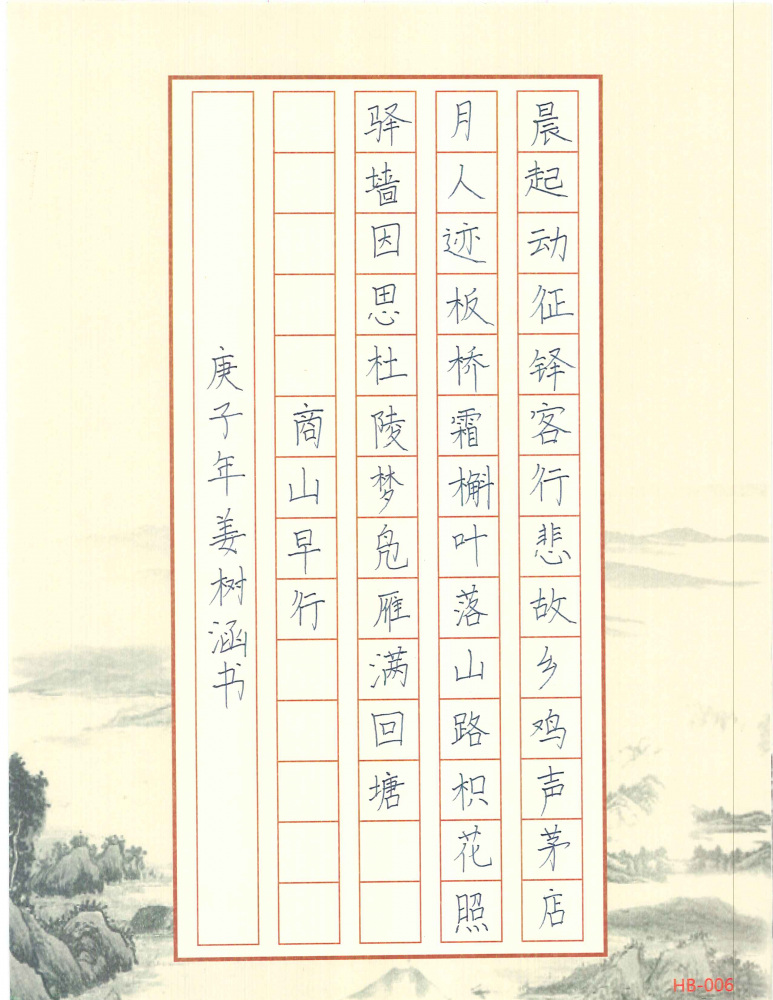 晨起动征铎客行悲故乡鸡声茅店
月人迹板桥霜槲叶落山路枳花照
驿墙因思杜陵梦凫雁满回塘
商山早行
庚子年姜树涵书
HB-006